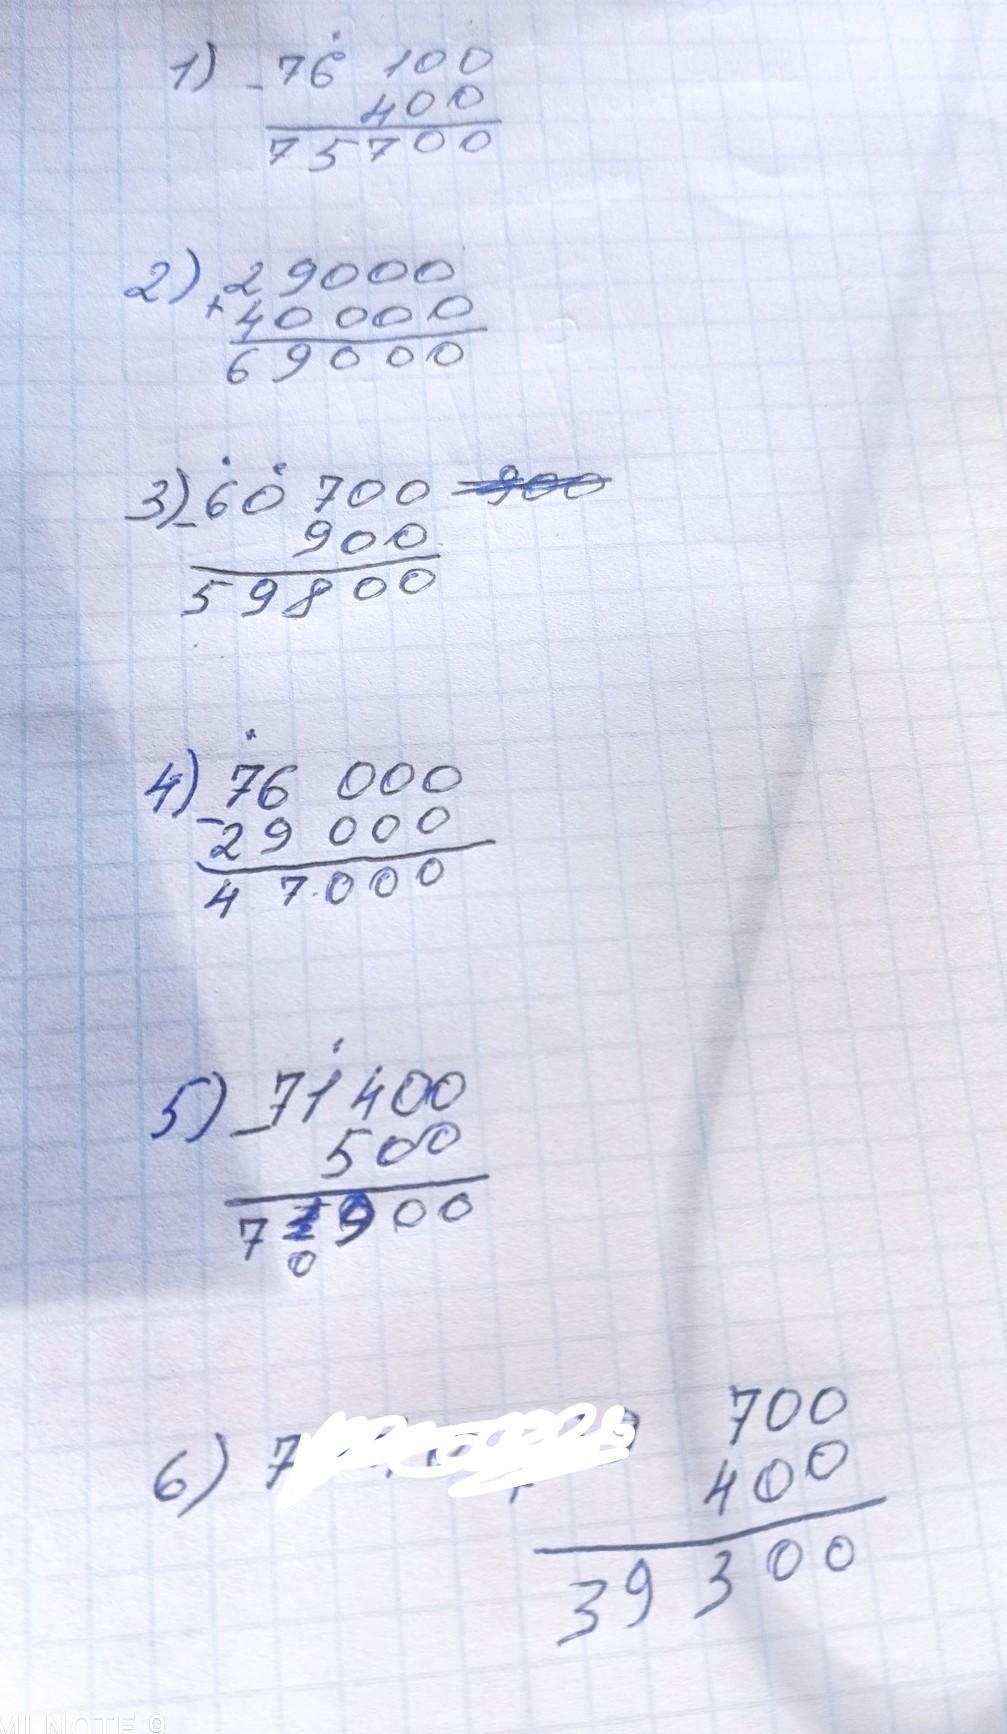 1) - 76 100
400
75700
2) + 29000
40000
69000
3) - 60 700
900
59800
4) - 76 000
29 000
47.000
5) - 71 400
500
7 900
0
6) 7 700
400
39 300
MI NOTE 9